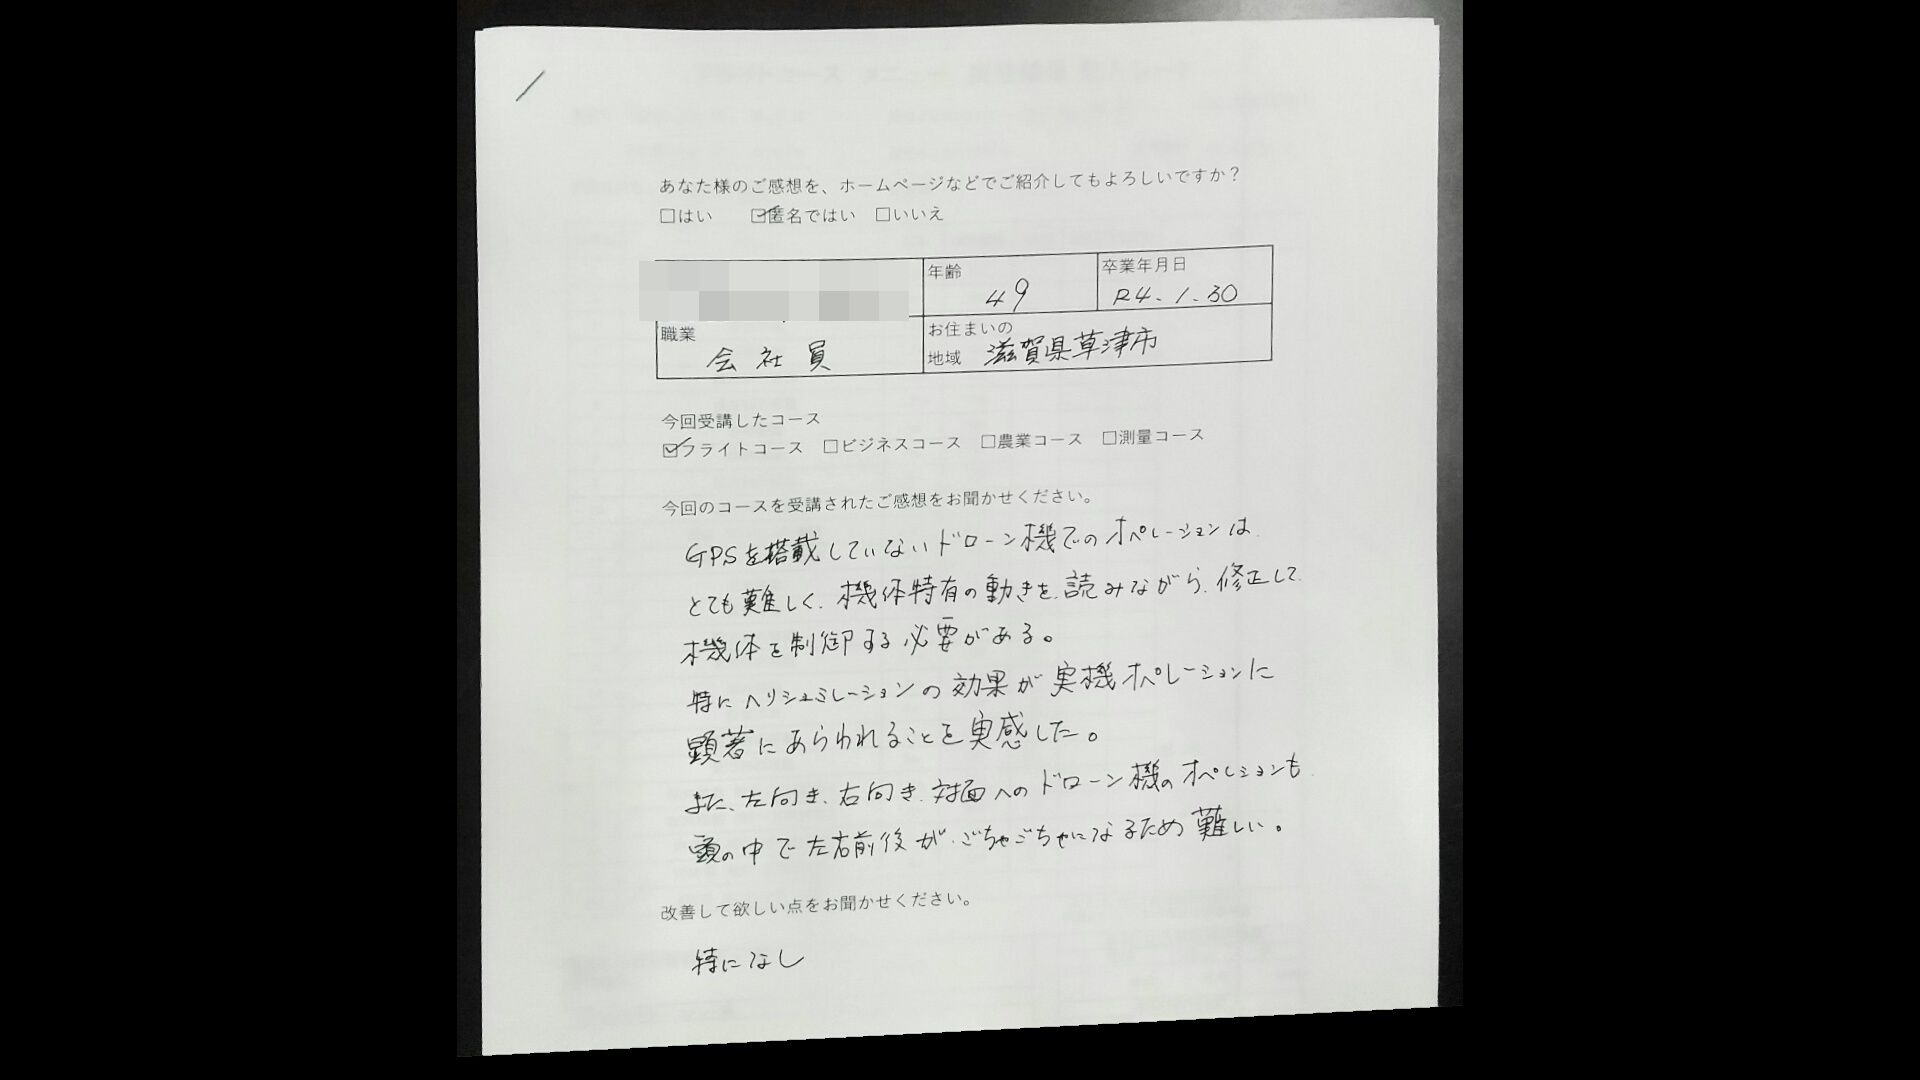 あなた様のご感想を、ホームページなどでご紹介してもよろしいですか？
□はい ☑匿名ではい □いいえ
年齢 卒業年月日
49 R4.1.30
職業 お住まいの
会社員 地域 滋賀県草津市
今回受講したコース
☑フライトコース □ビジネスコース □農業コース □測量コース
今回のコースを受講されたご感想をお聞かせください。
GPSを搭載していないドローン機でのオペレーションは
とても難しく、機体特有の動きを読みながら、修正して
機体を制御する必要がある。
特にヘリシュミレーションの効果が実機オペレーションに
顕著にあらわれることを実感した。
また、左向き、右向き、対面へのドローン機のオペレションも
頭の中で左右前後が、ごちゃごちゃになるため難しい。
改善して欲しい点をお聞かせください。
特になし